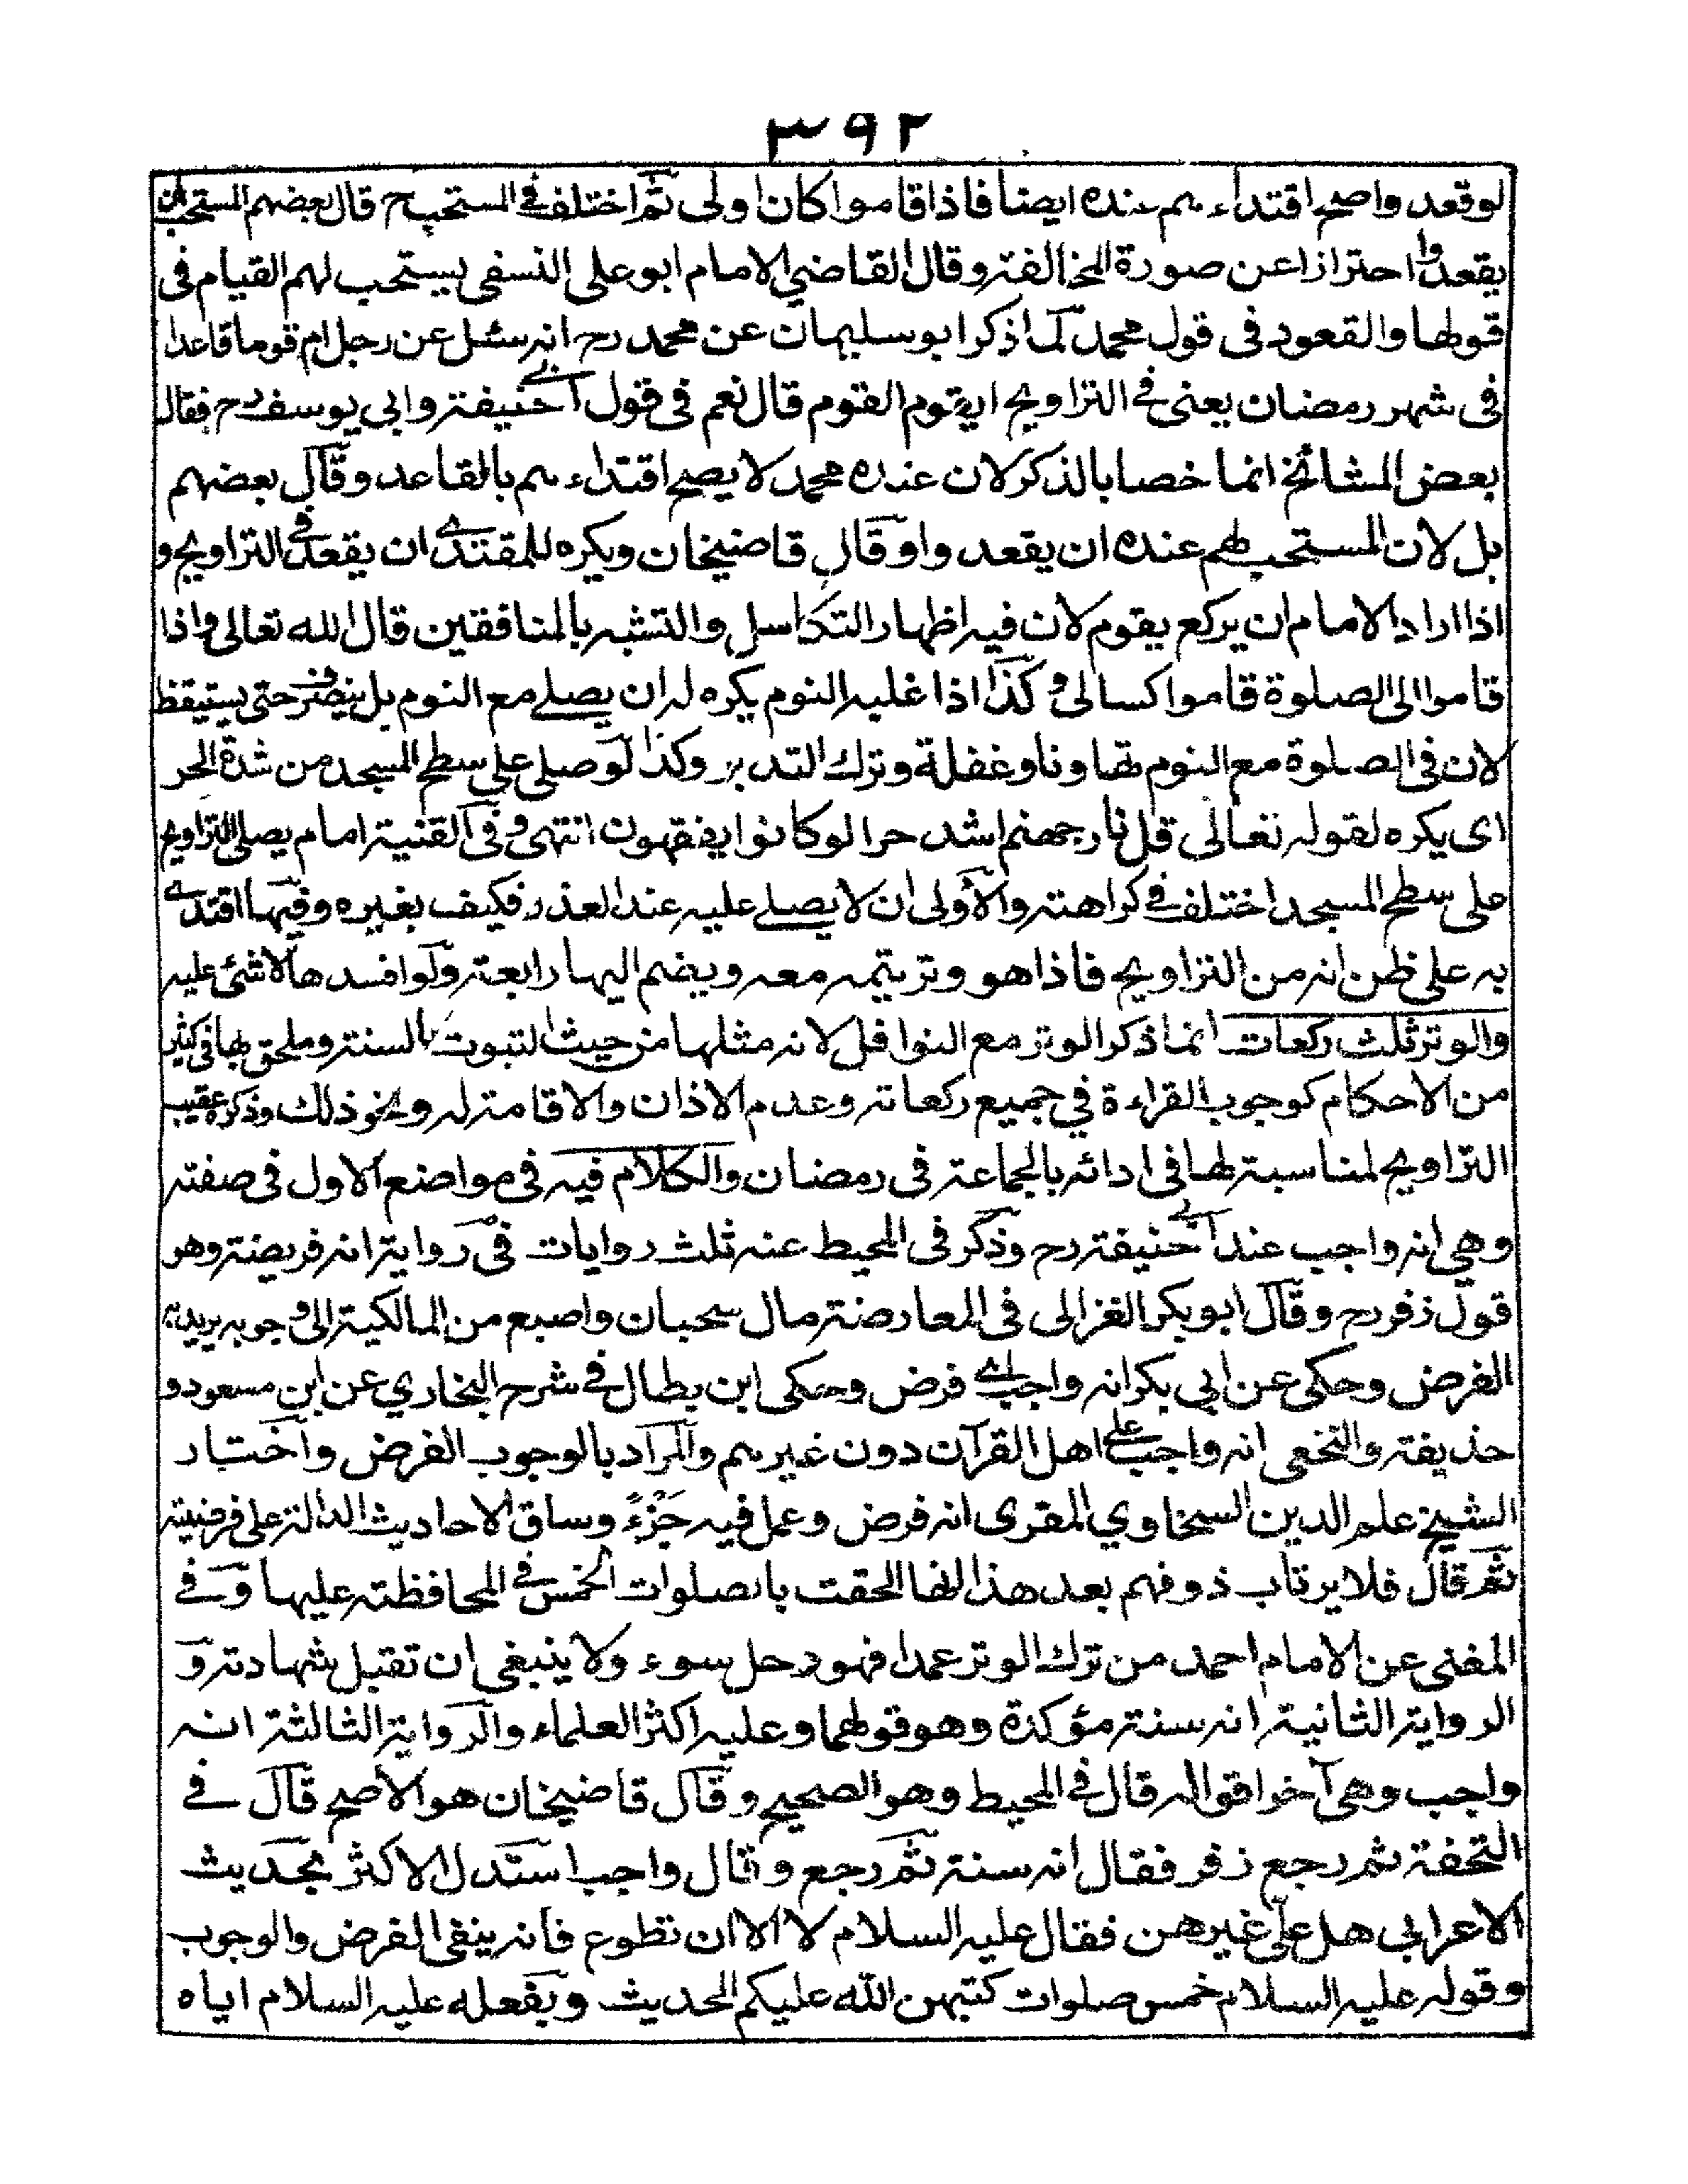 ٣٩٢
لوقعد واصح اقتداء هم عنده ايضا فاذا قاموا كان اولى ثم اختلف في المستحب ح قال بعضهم المستحب ان
يقعدوا احترازا عن صورة المخالفة وقال القاضي الامام ابو على النسفى يستحب لهم القيام فى
قولهما والقعود فى قول محمد لما ذكر ابو سليمان عن محمد رح انه سئل عن رجل ام قوما قاعدا
فى شهر رمضان يعنى في التراويح ايقوم القوم قال نعم فى قول ابي حنيفة وابى يوسف رح فقال
بعض المشائخ انما خصا بالذكر لان عنده محمد لا يصح اقتداء هم بالقاعد وقال بعضهم
بل لان المستحب لهم عنده ان يقعد واو قال قاضيخان ويكره للمقتدي ان يقعد في التراويح و
اذا اراد الامام ان يركع يقوم لان فيه اظهار التكاسل والتشبه بالمنافقين قال الله تعالى واذا
قاموا الى الصلوة قاموا كسالى و كذا اذا غلبه النوم يكره له ان يصلے مع النوم بل ينصرف حتى يستيقظ
لان فى الصلوة مع النوم تهاونا وغفلة وترك التدبر وكذا لو صلى على سطح المسجد من شدة الحر
اى يكره لقوله تعالى قل نار جهنم اشد حرا لوكانوا يفقهون انتهى وفى القنية امام يصلى التراويح
على سطح المسجد اختلف في كراهته والاولى ان لا يصلے عليه عند العذر فكيف بغيره وفيها اقتدى
به على ظن انه من التراويح فاذا هو وتر يتمه معه ويضم اليها رابعة ولو افسدها لا شئ عليه
والوتر ثلث ركعات انما ذكر الوتر مع النوافل لانه مثلها من حيث الثبوت بالسنة وملحق بها فى كثير
من الاحكام كوجوب القراءة في جميع ركعاته وعدم الاذان والاقامة له ونحو ذلك وذكره عقيب
التراويح لمناسبة لها فى ادائه بالجماعة فى رمضان والكلام فيه فى مواضع الاول فى صفته
وهي انه واجب عند ابي حنيفة رح وذكر فى المحيط عنه ثلث روايات فى رواية انه فريضة وهو
قول زفر رح وقال ابو بكر الغزالى فى المعارضة مال سحبان واصبع من المالكية الى وجوبه يريد به
الفرض وحكى عن ابى بكر انه واجب اے فرض وحكى ابن بطال في شرح البخاري عن ابن مسعود و
حذيفة والنخعى انه واجب على اهل القرآن دون غيرهم والمراد بالوجوب الفرض واختار
الشيخ علم الدين السخاوي المقرى انه فرض وعمل فيه جزءً وساق الاحاديث الدالة على فرضيته
ثم قال فلا يرتاب ذو فهم بعد هذا انها الحقت بالصلوات الخمس في المحافظة عليها وفے
المغنى عن الامام احمد من ترك الوتر عمدا فهو رجل سوء ولا ينبغى ان تقبل شهادته و
الرواية الثانية انه سنة مؤكدة وهو قولهما وعليه اكثر العلماء والرواية الثالثة انه
واجب وهى آخر اقواله قال في المحيط وهو الصحيح وقال قاضيخان هو الاصح قال فے
التحفة ثم رجع زفر فقال انه سنة ثم رجع وقال واجب استدل الاكثر بحديث
الاعرابى هل على غيرهن فقال عليه السلام لا الا ان تطوع فانه ينفى الفرض والوجوب
وقوله عليه السلام خمس صلوات كتبهن الله عليكم الحديث وبفعله عليه السلام اياه